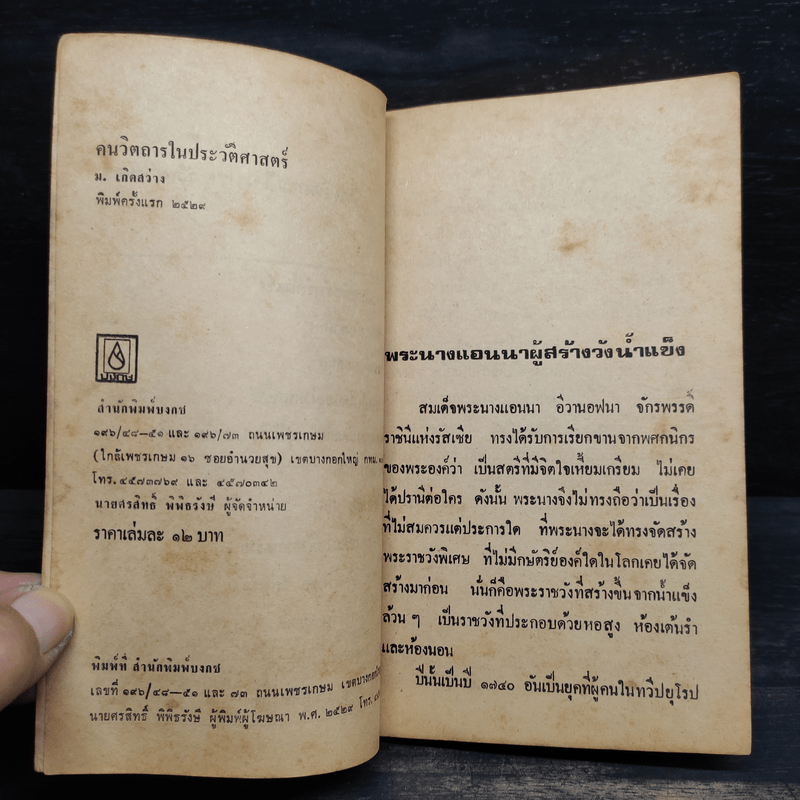 คนวิตถารในประวัติศาสตร์
ม. เกิดสว่าง
พิมพ์ครั้งแรก ๒๕๒๙
บงกช
สำนักพิมพ์บงกช
๑๙๖/๔๘—๕๑ และ ๑๙๖/๗๓ ถนนเพชรเกษม
(ใกล้เพชรเกษม ๑๖ ซอยอำนวยสุข) เขตบางกอกใหญ่ กทม.
โทร. ๔๕๗๓๗๖๙ และ ๔๕๗๐๓๔๒
นายศรสิทธิ์ พิพิธรังษี ผู้จัดจำหน่าย
ราคาเล่มละ ๑๒ บาท
พิมพ์ที่ สำนักพิมพ์บงกช
เลขที่ ๑๙๖/๔๘—๕๑ และ ๗๓ ถนนเพชรเกษม เขตบางกอกใหญ่
นายศรสิทธิ์ พิพิธรังษี ผู้พิมพ์ผู้โฆษณา พ.ศ. ๒๕๒๙ โทร.
พระนางแอนนาผู้สร้างวังน้ำแข็ง
สมเด็จพระนางแอนนา อีวานอฟนา จักรพรรดิ์
ราชินีแห่งรัสเซีย ทรงได้รับการเรียกขานจากพศกนิกร
ของพระองค์ว่า เป็นสตรีที่มีจิตใจเหี้ยมเกรียม ไม่เคย
ได้ปรานีต่อใคร ดังนั้น พระนางจึงไม่ทรงถือว่าเป็นเรื่อง
ที่ไม่สมควรแต่ประการใด ที่พระนางจะได้ทรงจัดสร้าง
พระราชวังพิเศษ ที่ไม่มีกษัตริย์องค์ใดในโลกเคยได้จัด
สร้างมาก่อน นั่นก็คือพระราชวังที่สร้างขึ้นจากน้ำแข็ง
ล้วน ๆ เป็นราชวังที่ประกอบด้วยหอสูง ห้องเต้นรำ
และห้องนอน
ปีนั้นเป็นปี ๑๗๔๐ อันเป็นยุคที่ผู้คนในทวีปยุโรป